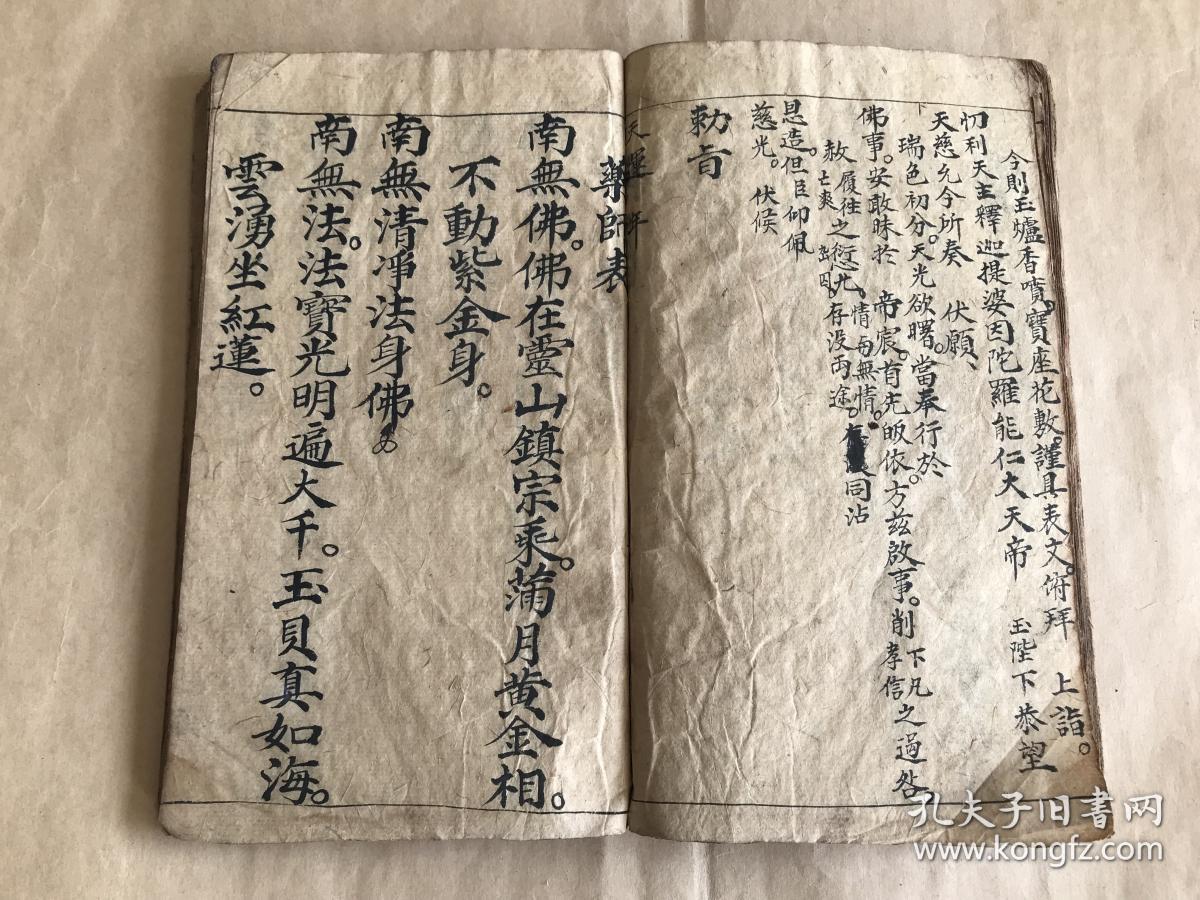 今則玉爐香噴。寶座花敷。謹具表文。俯拜 上詣。
忉利天主釋迦提婆因陀羅能仁大天帝 玉陛下恭望
天慈允今所奏 伏願、
瑞色初分。天光欲曙。當奉行於
佛事。安敢昧於 帝宸。首先皈依。方兹啟事。削 下凡 孝信 之過咎。
赦 亡爽 履往之愆尤。情與無情。
存没两途。同沾
恩造。但臣仰佩
慈光。伏候
勅旨
天運 年
藥師表
南無佛。佛在靈山鎮宗乘。蒲月黄金相。
不動紫金身。
南無清凈法身佛
南無法。法寶光明遍大千。玉貝真如海。
雲湧坐紅蓮。
孔夫子旧书网
www.kongfz.com